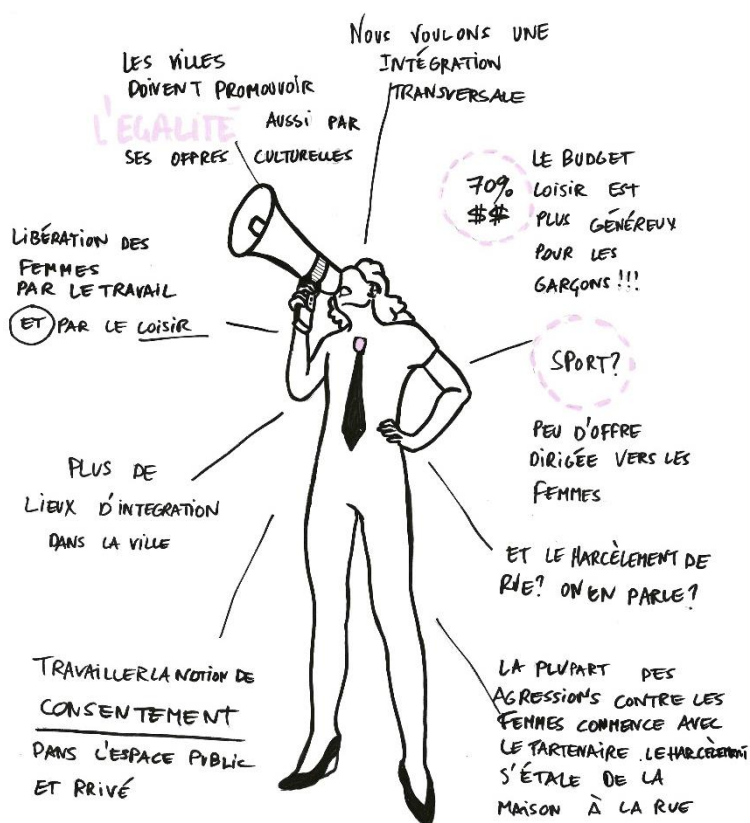 LES VILLES
DOIVENT PROMOUVOIR
L'EGALITÉ AUSSI PAR
SES OFFRES CULTURELLES
NOUS VOULONS UNE
INTÉGRATION
TRANSVERSALE
70%
$$
LE BUDGET
LOISIR EST
PLUS GÉNÉREUX
POUR LES
GARÇONS!!!
LIBÉRATION DES
FEMMES
PAR LE TRAVAIL
ET PAR LE LOISIR
SPORT?
PEU D'OFFRE
DIRIGÉE VERS LES
FEMMES
PLUS DE
LIEUX D'INTEGRATION
DANS LA VILLE
ET LE HARCÈLEMENT DE
RUE? ON EN PARLE?
TRAVAILLER LA NOTION DE
CONSENTEMENT
DANS L'ESPACE PUBLIC
ET PRIVÉ
LA PLUPART DES
AGRESSIONS CONTRE LES
FEMMES COMMENCE AVEC
LE PARTENAIRE. LE HARCÈLEMENT
S'ÉTALE DE LA
MAISON À LA RUE